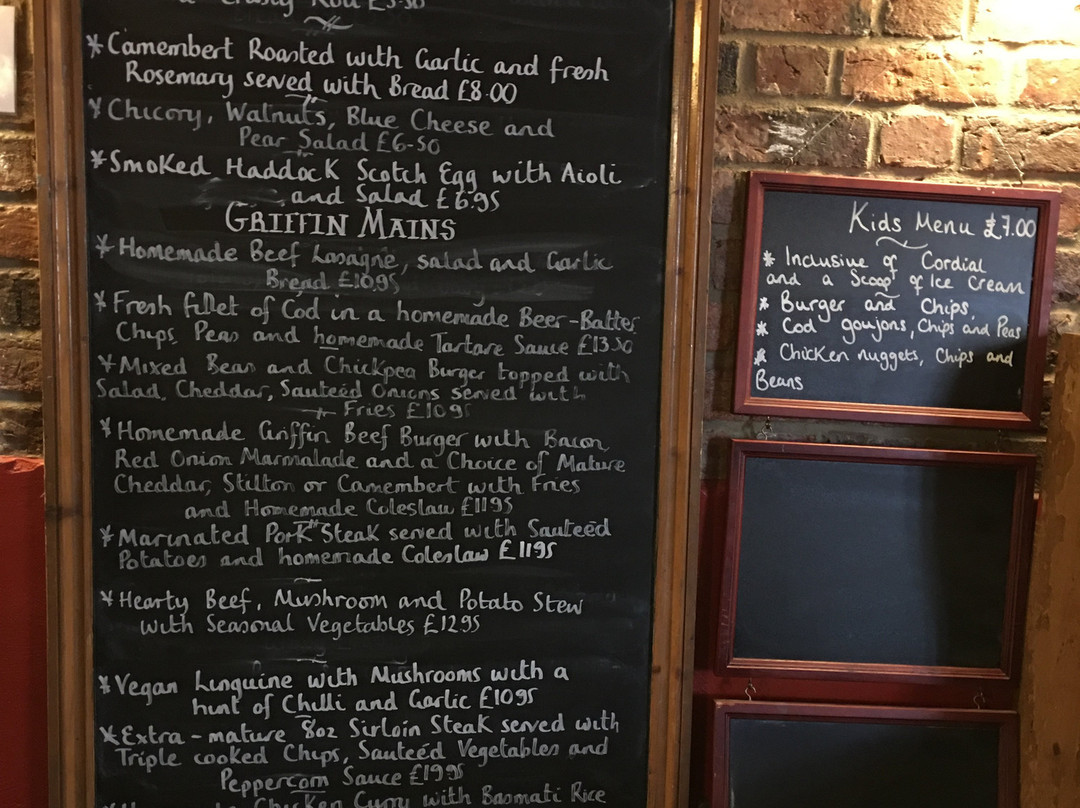 Crusty Roll £5-50
* Camembert Roasted with Garlic and fresh
Rosemary served with Bread £8.00
* Chicory, Walnuts, Blue Cheese and
Pear Salad £6-50
* Smoked Haddock Scotch Egg with Aioli
and Salad £6.95
GRIFFIN MAINS
* Homemade Beef Lasagne, salad and Garlic
Bread £10.95
* Fresh fillet of Cod in a homemade Beer-Batter
Chips, Peas and homemade Tartare Sauce £13.50
* Mixed Bean and Chickpea Burger topped with
Salad, Cheddar, Sauteéd Onions served with
Fries £10.95
* Homemade Griffin Beef Burger with Bacon,
Red Onion Marmalade and a Choice of Mature
Cheddar, Stilton or Camembert with Fries
and Homemade Coleslaw £11.95
* Marinated Pork Steak served with Sauteéd
Potatoes and homemade Coleslaw £11.95
* Hearty Beef, Mushroom and Potato Stew
with Seasonal Vegetables £12.95
* Vegan Linguine with Mushrooms with a
hint of Chilli and Garlic £10.95
* Extra-mature 8oz Sirloin Steak served with
Triple cooked Chips, Sauteéd Vegetables and
Peppercorn Sauce £19.95
Chicken Curry with Basmati Rice
Kids Menu £7.00
* Inclusive of Cordial
and a Scoop of Ice Cream
* Burger and Chips,
* Cod goujons, Chips and Peas
* Chicken nuggets, Chips and
Beans